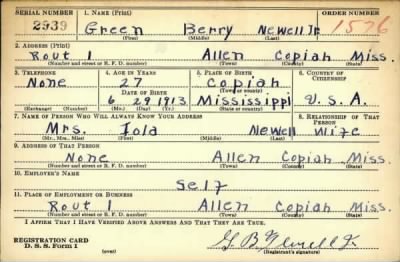 SERIAL NUMBER 1. NAME (Print) ORDER NUMBER
2939 Green Berry Newell Jr. 1576
(First) (Middle) (Last)
2. ADDRESS (Print)
Rout 1 Allen Copiah Miss.
(Number and street or R. F. D. number) (Town) (County) (State)
3. TELEPHONE 4. AGE IN YEARS 5. PLACE OF BIRTH 6. COUNTRY OF CITIZENSHIP
None 27 Copiah
DATE OF BIRTH (Town or county)
6 29 1913 Mississippi U.S.A.
(Exchange) (Number) (Mo.) (Day) (Yr.) (State or country)
7. NAME OF PERSON WHO WILL ALWAYS KNOW YOUR ADDRESS 8. RELATIONSHIP OF THAT PERSON
Mrs. Iola Newell Wife
(Mr., Mrs., Miss) (First) (Middle) (Last)
9. ADDRESS OF THAT PERSON
None Allen Copiah Miss.
(Number and street or R. F. D. number) (Town) (County) (State)
10. EMPLOYER'S NAME
Self
11. PLACE OF EMPLOYMENT OR BUSINESS
Rout 1 Allen Copiah Miss.
(Number and street or R. F. D. number) (Town) (County) (State)
I AFFIRM THAT I HAVE VERIFIED ABOVE ANSWERS AND THAT THEY ARE TRUE.
REGISTRATION CARD
D. S. S. Form 1 (over) G B Newell Jr
(Registrant's signature)